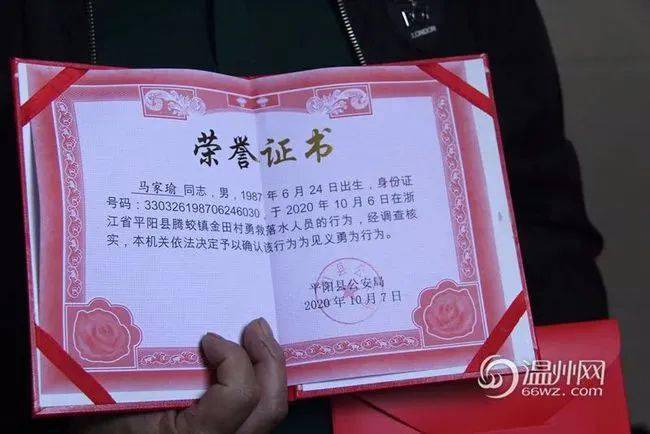 LONDON
荣誉证书
马家瑜 同志，男，1987 年 6 月 24 日出生，身份证
号码：330326198706246030，于 2020 年 10 月 6 日在浙
江省平阳县腾蛟镇金田村勇救落水人员的行为，经调查核
实，本机关依法决定予以确认该行为为见义勇为行为。
平阳县公安局
2020 年 10 月 7 日
温州网
66WZ.COM